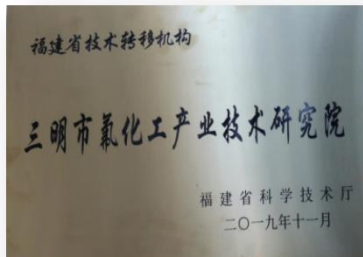 福建省技术转移机构
三明市氟化工产业技术研究院
福建省科学技术厅
二〇一九年十一月